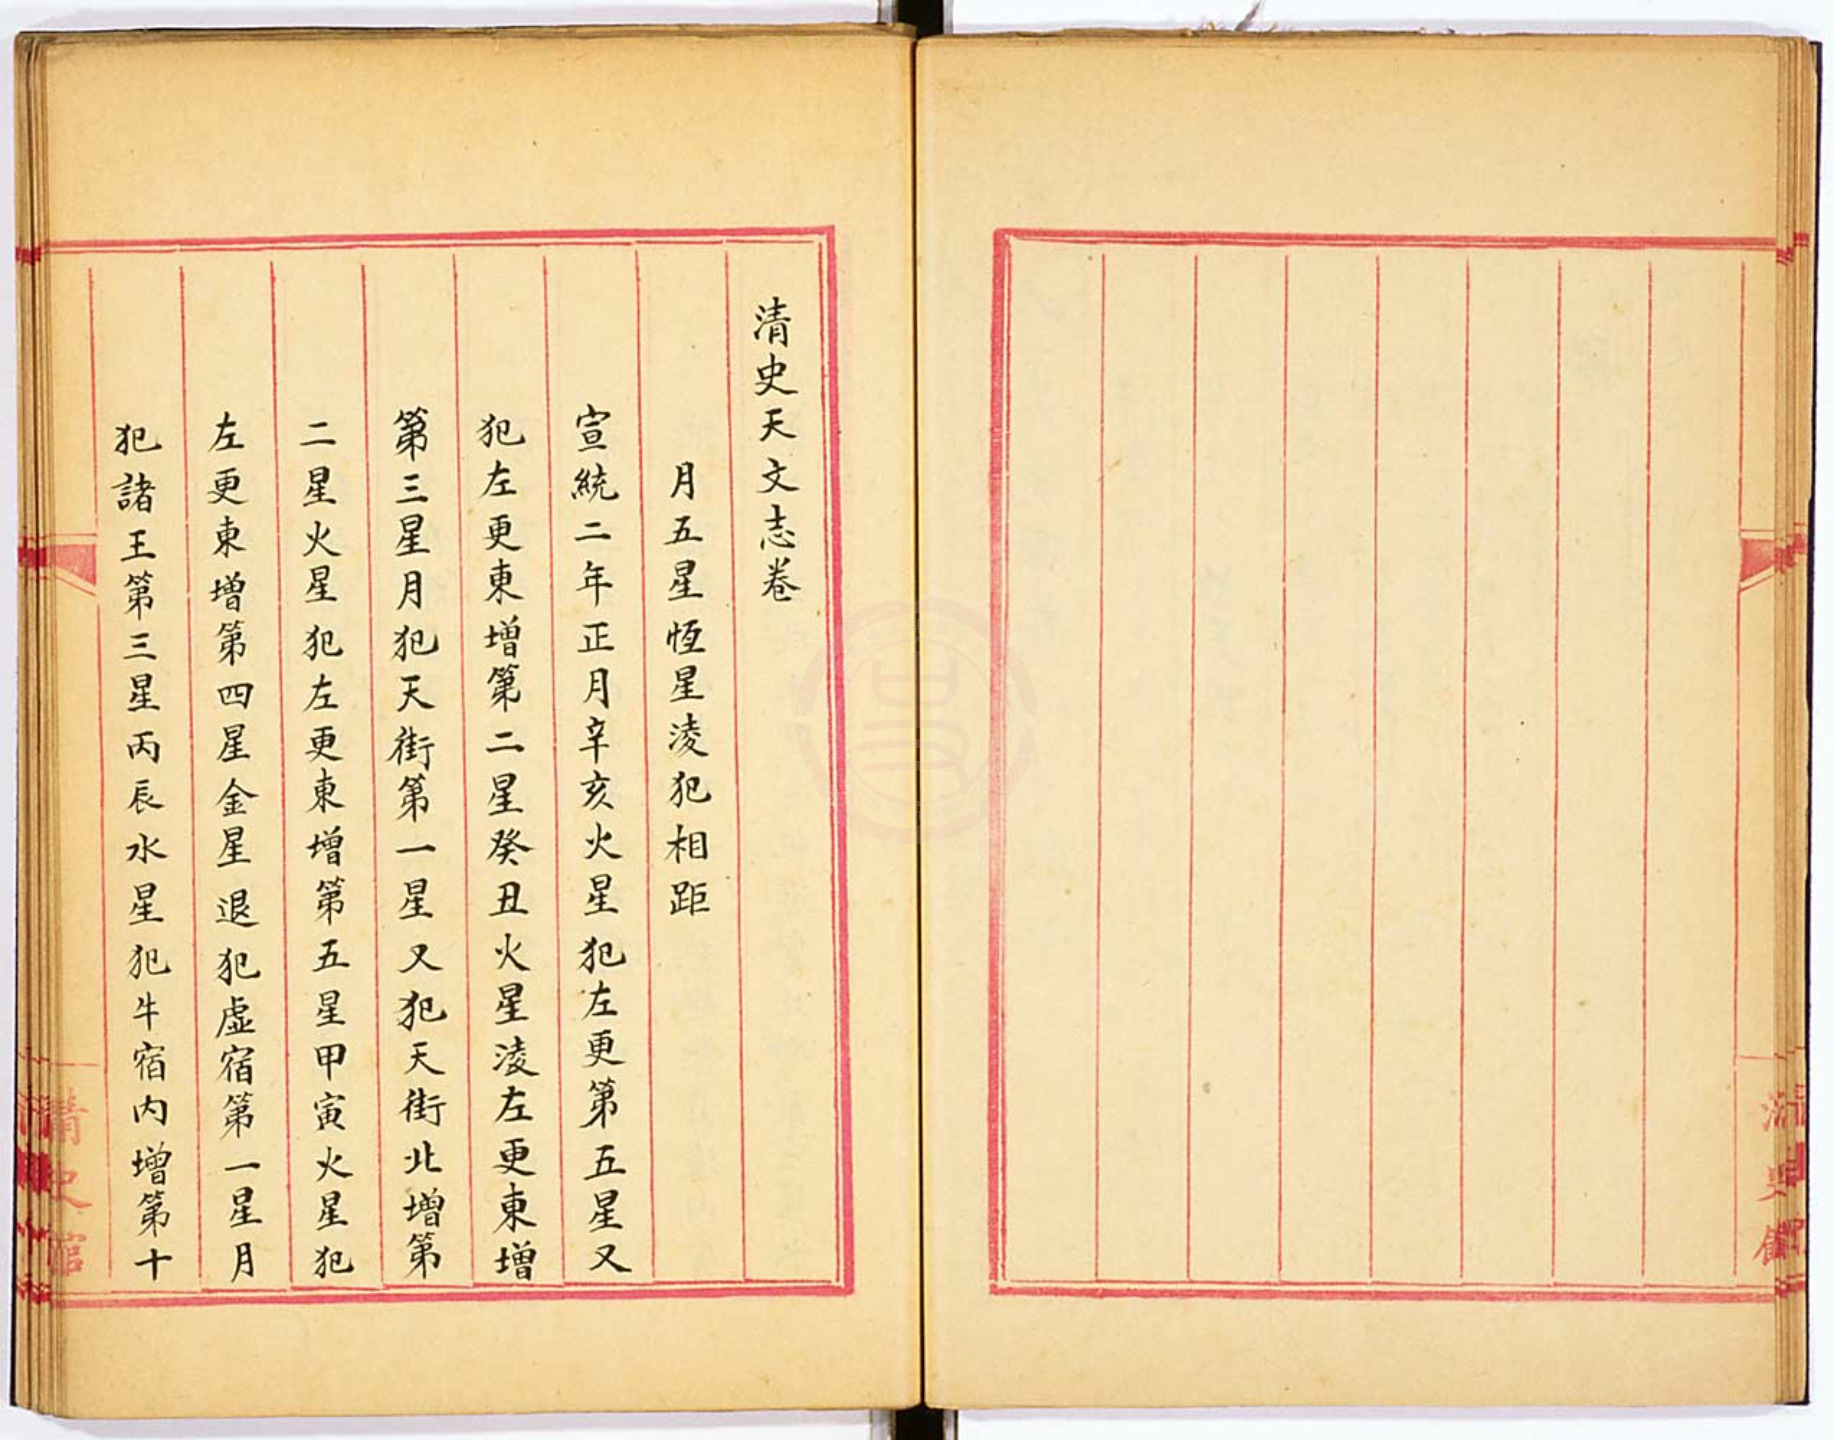 清史天文志卷
月五星恆星凌犯相距
宣統二年正月辛亥火星犯左更第五星又
犯左更東增第二星癸丑火星凌左更東增
第三星月犯天街第一星又犯天街北增第
二星火星犯左更東增第五星甲寅火星犯
左更東增第四星金星退犯虛宿第一星月
犯諸王第三星丙辰水星犯牛宿內增第十
清史館